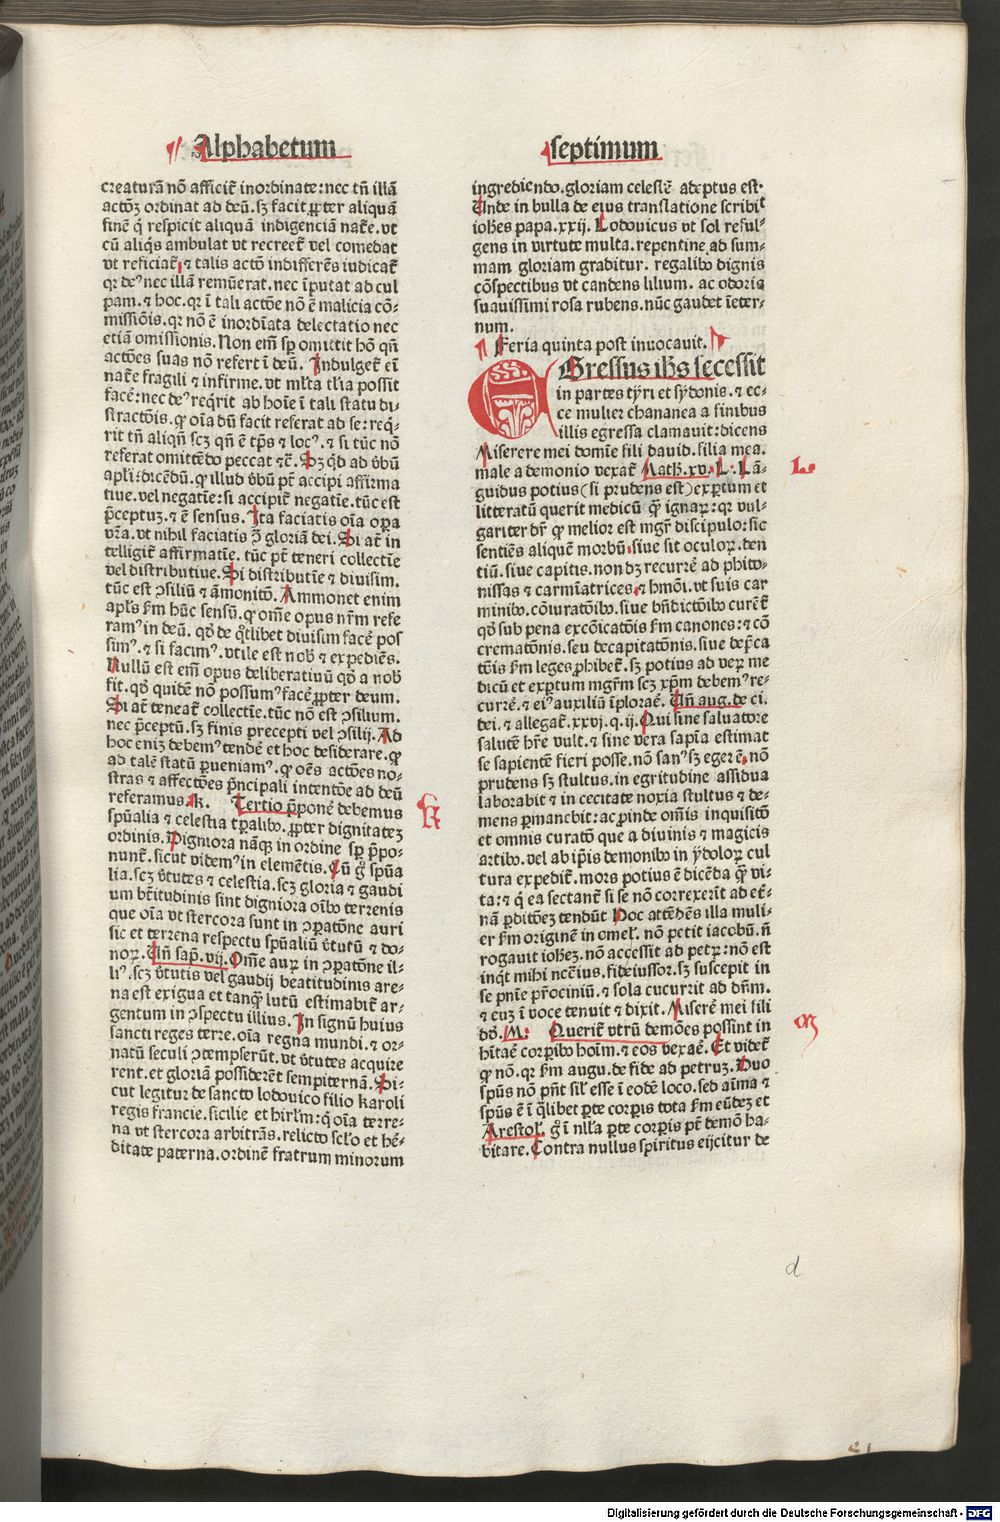 Alphabetum
creaturā nō afficit̄ inordinate: nec tn̄ illā
actōꝫ ordinat ad deū. sꝫ facit ꝓpter aliquā
finē q̄ respicit aliquā indigenciā nat̄e. vt
cū aliq̄s ambulat vt recreet̄ vel comedat
vt reficiat̄, ⁊ talis actō indifferēs iudicat̄
qꝛ deꝰ nec illā remūerat. nec īputat ad cul
pam. ⁊ hoc. qꝛ ī tali actōe nō ē malicia cō⸗
missiōis. qꝛ nō ē inordīata delectatio nec
etiā omissionis. Non em̄ sp̄ omittit hō qn̄
actōes suas nō refert ī deū. Indulget̄ eī
nat̄e fragili ⁊ infirme. vt ml̄ta tl̄ia possit
facē: nec deꝰ req̄rit ab hoīe ī tali statu di⸗
stractōis. ꝙ oīa dū facit referat ad se: req̄⸗
rit tn̄ aliqn̄ scꝫ qn̄ ē tp̄s ⁊ locꝰ. ⁊ si tūc nō
referat omittēdo peccat ⁊c̄. Sꝫ qd̄ ad v̄bū
apl̄i: dicēdū. ꝙ illud v̄bū pt̄ accipi affirma
tiue. vel negatīe: si accipit̄ negatīe. tūc est
p̄ceptuꝫ. ⁊ ē sensus. Ita faciatis oīa oꝑa
vr̄a. vt nihil faciatis ꝯ̄ gloriā dei. Si at̄ in
telligit̄ affirmatīe. tūc pt̄ teneri collectīe
vel distributiue. Si distributīe ⁊ diuisim.
tūc est ꝯsiliū ⁊ āmonitō. Ammonet enim
apl̄s ẜm hūc sensū. ꝙ om̄e opus nr̄m refe
ramꝰ in deū. qd̄o de q̄tlibet diuisim facē pos
simꝰ. ⁊ si facimꝰ. vtile est nob̄ ⁊ expediēs.
Nullū est em̄ opus deliberatiuū qd̄o a nob̄
fit. qd̄o quidē nō possumꝰ facē ꝓpter deum.
Si at̄ teneat̄ collectīe. tūc nō est ꝯsilium.
nec p̄ceptū. sꝫ finis precepti vel ꝯsilij. Ad
hoc enīꝫ debemꝰ tendē et hoc desiderare. ꝙ
ad talē statū ꝑueniamꝰ. ꝙ oēs actōes no⸗
stras ⁊ affectōes p̄ncipali intentōe ad deū
referamus. K. Tertio p̄ponē debemus
spūalia ⁊ celestia tꝑalibꝰ. ꝓpter dignitateꝫ
ordinis. Digniora nāqꝫ in ordine sp̄ p̄po⸗
nunt̄. sicut videmꝰ in elemētis. Cū gͦ spūa
lia. scꝫ v̄tutes ⁊ celestia. scꝫ gloria ⁊ gaudi
um bt̄itudinis sint digniora oībꝰ terrenis
que oīa vt stercora sunt in ꝯꝑatōne auri
sic et terrena respectu spūaliū v̄tutū ⁊ do⸗
noꝝ. Vn̄ sap̄. vij. Om̄e auꝝ in ꝯꝑatōne il⸗
liꝰ. scꝫ v̄tutis vel gaudij beatitudinis are⸗
na est exigua et tanqꝫ̄ lutū estimabit̄ ar⸗
gentum in ꝯspectu illius. In signū huius
sancti reges terre. oīa regna mundi. ⁊ or⸗
natū seculi ꝯtempserūt. vt v̄tutes acquire
rent. et gloriā possiderēt sempiternā. Si⸗
cut legitur de sancto lodouico filio karoli
regis francie. sicilie et hirlm̄: q̄ oīa terre⸗
na vt stercora arbitrās. relicto sclo̅ et hē⸗
ditate paterna. ordinē fratrum minorum
K
septimum
ingrediendo. gloriam celestē adeptus est.
Unde in bulla de eius translatione scribit
ioh̄es papa. xxij. Lodouicus vt sol reful⸗
gens in virtute multa. repentine ad sum⸗
mam gloriam graditur. regalibꝰ dignis
cōspectibus vt candens lilium. ac odoris
suauissimi rosa rubens. nūc gaudet īeter⸗
num.
Feria quinta post inuocauit.
EGressus ih̄s secessit
in partes tyri et sydonis. ⁊ ec⸗
ce mulier chananea a finibus
illis egressa clamauit: dicens
Miserere mei domīe fili dauid. filia mea
male a demonio vexat̄ Math. xv. L. Lā⸗
guidus potius (si prudens est) exꝑtum et
litteratū querit medicū qꝫ̄ ignaꝝ: qꝛ vul⸗
gariter dr̄ ꝙ melior est mgr̄ discipulo: sic
sentiēs aliquē morbū. siue sit oculoꝝ. den
tiū. siue capitis. non dꝫ recurrē ad phito⸗
nissas ⁊ carmīatrices, ⁊ hmōi. vt suis car
minibꝰ. cōiuratōibꝰ. siue bn̄dictōibꝰ curēt̄
qd̄o sub pena excōicatōis ẜm canones: ⁊ cō
crematōnis. seu decapitatōnis. siue dep̄ca
tōis ẜm leges ꝓhibet̄. sꝫ potius ad veꝝ me
dicū et exꝑtum mgr̄m scꝫ xp̄m debemꝰ re⸗
currē. ⁊ eiꝰ auxiliū īploraē. Vn̄ aug. de ci.
dei. ⁊ allegat̄. xxvj. q. ij. Qui sine saluatore
salutē hr̄e vult. ⁊ sine vera sapīa estimat
se sapientē fieri posse. nō sanꝰ sꝫ eger ē. nō
prudens sꝫ stultus. in egritudine assidua
laborabit ⁊ in cecitate noxia stultus ⁊ de⸗
mens ꝑmanebit: ac ꝓinde om̄is inquisitō
et omnis curatō que a diuinis ⁊ magicis
artibꝰ. vel ab ip̄is demonibꝰ in ydoloꝝ cul
tura expedit̄. mors potius ē dicēda qꝫ̄ vi⸗
ta: ⁊ q̄ ea sectant̄ si se nō correxerīt ad et̄⸗
nā ꝑditōeꝫ tendūt Hoc attēdēs illa muli⸗
er ẜm originē in omel̄. nō petit iacobū. n̄
rogauit ioh̄eꝫ. nō accessit ad petꝝ: nō est
inq̄t mihi nccīus. fideiussor. sꝫ suscepit in
se pnīe pr̄ociniū. ⁊ sola cucurit ad dn̄m.
⁊ euꝫ ī voce tenuit ⁊ dixit. Miserē mei fili
dd̄. M. Querit̄ vtrū demōes possint in
hītaē corꝑibꝰ hoīm. ⁊ eos vexaē. Et videt̄
ꝙ nō. qꝛ ẜm augu. de fide ad petruꝫ. Duo
spūs nō pn̄t sil̄ esse ī eodē loco. sed aīma ⁊
spūs ē ī q̄libet ꝑte corꝑis tota ẜm eūdeꝫ et
Arestol̄. gͦ ī nll̄a ꝑte corꝑis pt̄ demō ha⸗
bitare. Contra nullus spiritus eijcitur de
L.
M
d
Digitalisierung gefördert durch die Deutsche Forschungsgemeinschaft - DFG